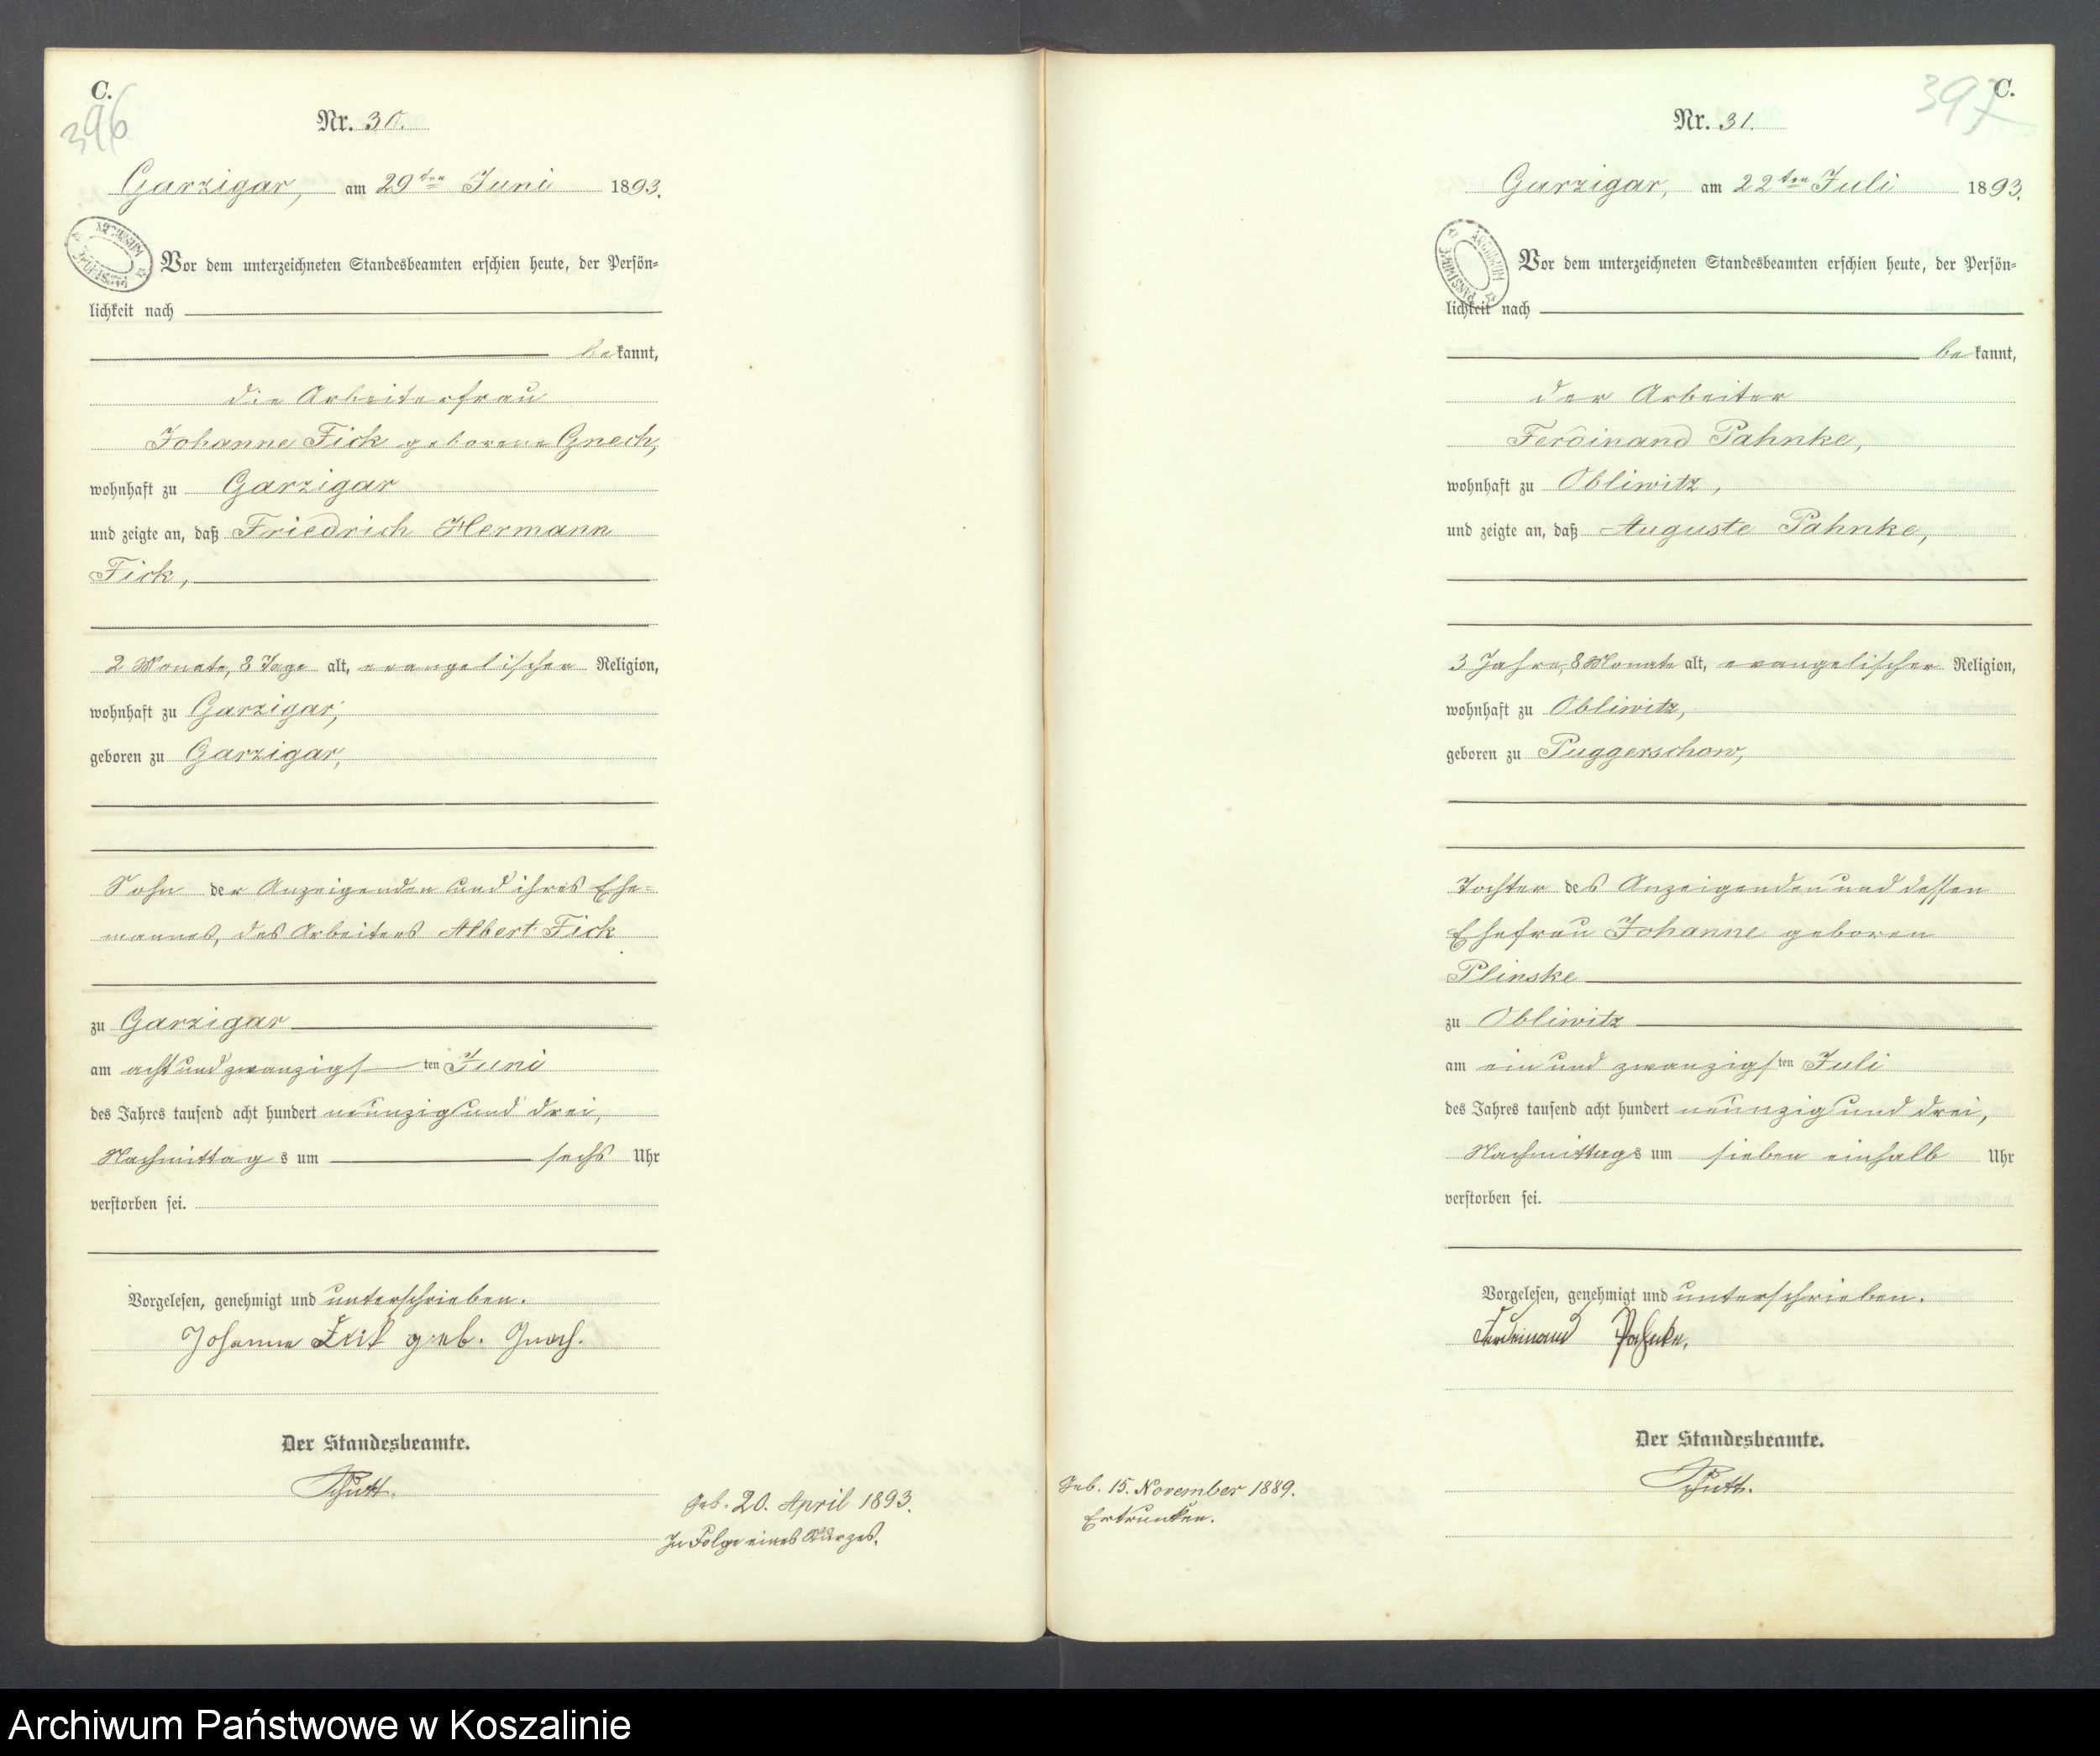 C.
396
Nr. 30.
Garzigar, am 29ten Juni 1893.
ARCHIWUM PAŃSTWOWE
Vor dem unterzeichneten Standesbeamten erschien heute, der Persön=
lichkeit nach
bekannt,
die Arbeiterfrau
Johanne Fick geborene Gnech,
wohnhaft zu Garzigar
und zeigte an, daß Friedrich Hermann
Fick,
2 Monate, 8 Tage alt, evangelischer Religion,
wohnhaft zu Garzigar,
geboren zu Garzigar,
Sohn der Anzeigenden und ihres Ehe=
mannes, des Arbeiters Albert Fick
zu Garzigar
am acht und zwanzigsten Juni
des Jahres tausend acht hundert neunzig und drei,
Nachmittags um sechs Uhr
verstorben sei.
Vorgelesen, genehmigt und unterschrieben.
Johanne Fick geb. Gnech.
Der Standesbeamte.
Geb. 20. April 1893.
In Folge eines Sturzes.
397
C.
Nr. 31.
Garzigar, am 22ten Juli 1893.
ARCHIWUM PAŃSTWOWE
Vor dem unterzeichneten Standesbeamten erschien heute, der Persön=
lichkeit nach
bekannt,
der Arbeiter
Ferdinand Pahnke,
wohnhaft zu Obliwitz,
und zeigte an, daß Auguste Pahnke,
3 Jahre, 8 Monate alt, evangelischer Religion,
wohnhaft zu Obliwitz,
geboren zu Puggerschow,
Tochter des Anzeigenden und dessen
Ehefrau Johanne geboren
Plinske
zu Obliwitz
am ein und zwanzigsten Juli
des Jahres tausend acht hundert neunzig und drei,
Nachmittags um sieben einhalb Uhr
verstorben sei.
Vorgelesen, genehmigt und unterschrieben.
Ferdinand Pahnke.
Der Standesbeamte.
Geb. 15. November 1889.
Ertrunken.
Archiwum Państwowe w Koszalinie